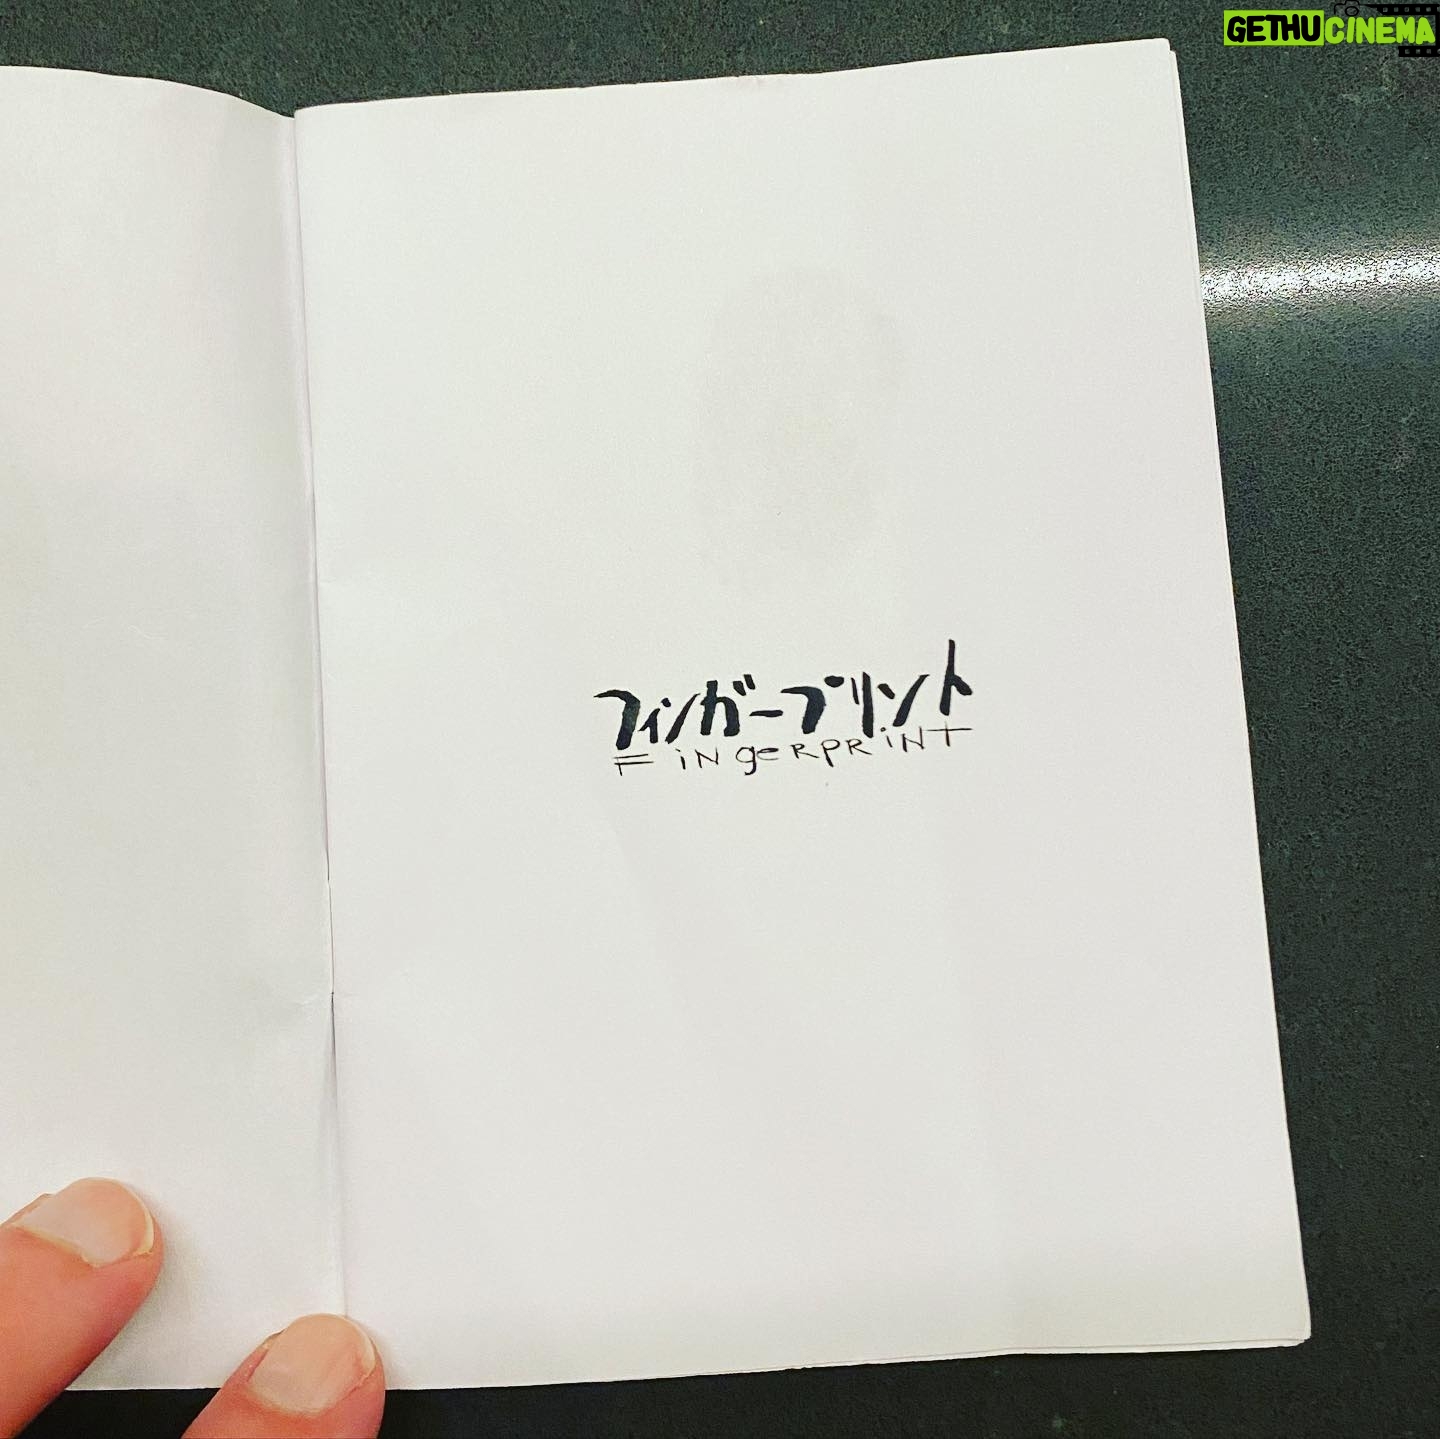 GETHUCINEMA
フィンガープリント
FiNgeRPRiNT